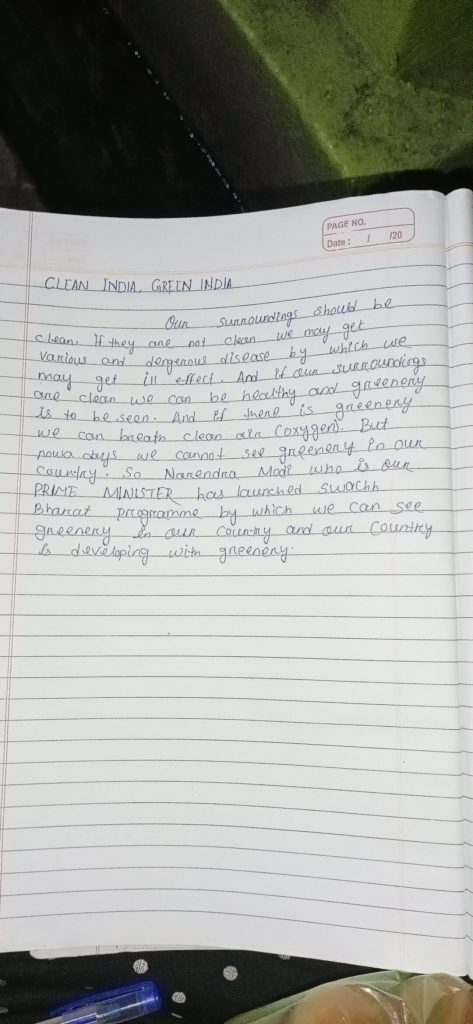 PAGE NO.
Date: / /20
CLEAN INDIA, GREEN INDIA
Our surroundings should be
clean. If they are not clean we may get
various and dengenous disease by which we
may get ill effect. And if our surroundings
are clean we can be healthy and greenery
is to be seen. And if there is greenery
we can breath clean air (oxygen). But
nowa days we cannot see greenery in our
country. So Narendra Modi who is our
PRIME MINISTER has launched swachh
Bharat programme by which we can see
greenery in our country and our country
is developing with greenery.